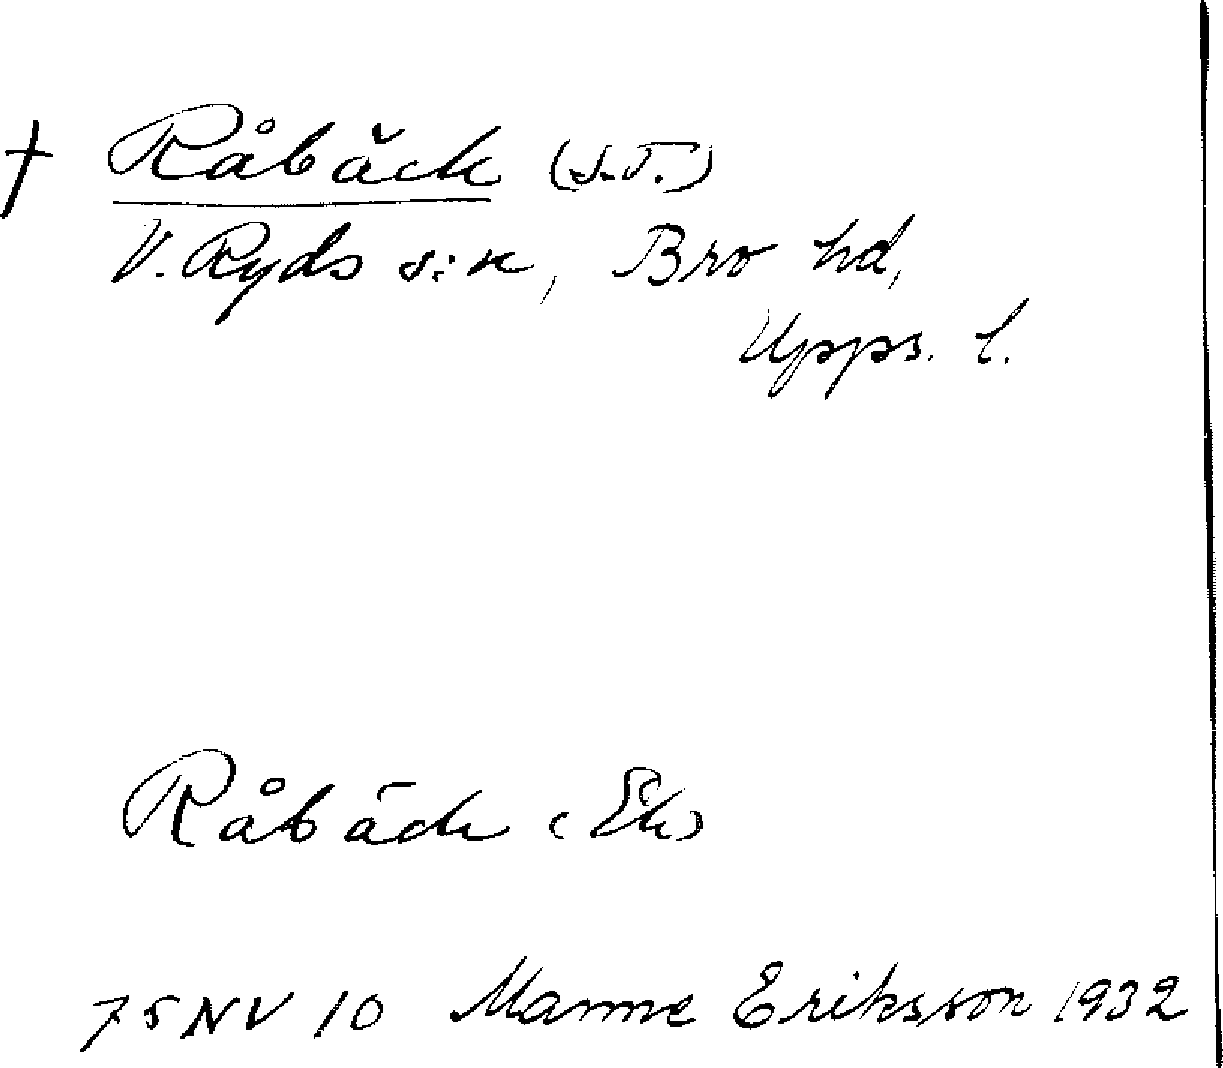 † Råbäck (s.v.)
V. Ryds s:n, Bro hd,
Upps. l.
Råbäck (Ek)
75 NV 10 Manne Eriksson 1932